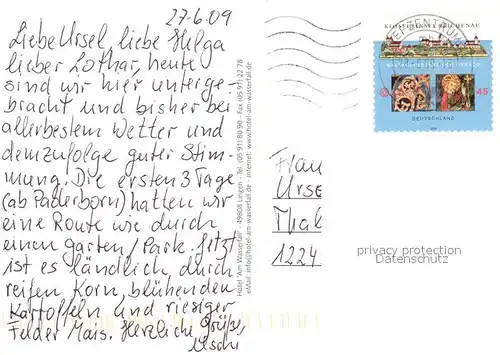 27.6.09
Liebe Ursel, liebe Helga
lieber Lothar, heute
sind wir hier unterge-
bracht und bisher bei
allerbestem Wetter und
demzufolge guter Stim-
mung. Die ersten 3 Tage
(ab Paderborn) hatten wir
eine Route wie durch
einen garten/Park. Jetzt
ist es ländlich, durch
reifen Korn, blühenden
Kartoffeln und riesiger
Felder Mais. Herzliche Grüße,
Uschi
Hotel "Am Wasserfall" - 49808 Lingen - Tel. (05 91) 80 90 - Fax (05 91) 22 78
eMail: info@hotel-am-wasserfall.de - Internet: www.hotel-am-wasserfall.de
KLOSTERINSEL REICHENAU
45
DEUTSCHLAND
Frau
Urse
Thal
1224
privacy protection
Datenschutz